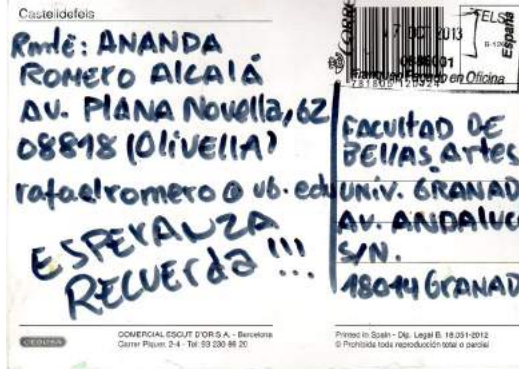 Castelldefels
Rmte: ANANDA
ROMERO ALCALÁ
AV. PLANA NOVELLA, 62
08818 (OLIVELLA)
rafaelromero@ub.edu
ESPERANZA
RECUERda !!!
CORRE
7 OCT 2013
0888001
Franqueo Pagado en Oficina
TELS
España
FACULTAD DE
BELLAS Artes
UNIV. GRANAD
AV. ANDALUC
S/N.
18014 GRANAD
COMERCIAL ESCUT D'OR S.A. - Barcelona
Tel. 93 230 86 20
Printed in Spain - Dip. Legal B. 18.051-2012
© Prohibida toda reproducción total o parcial